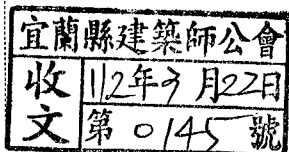 宜蘭縣建築師公會
收文
112年3月22日
第0145號